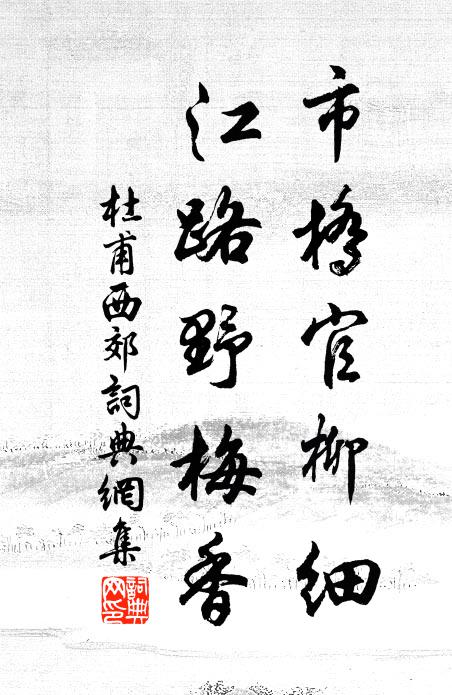 市橋官柳細
江路野梅香
杜甫西郊詞典網集
詞典网印